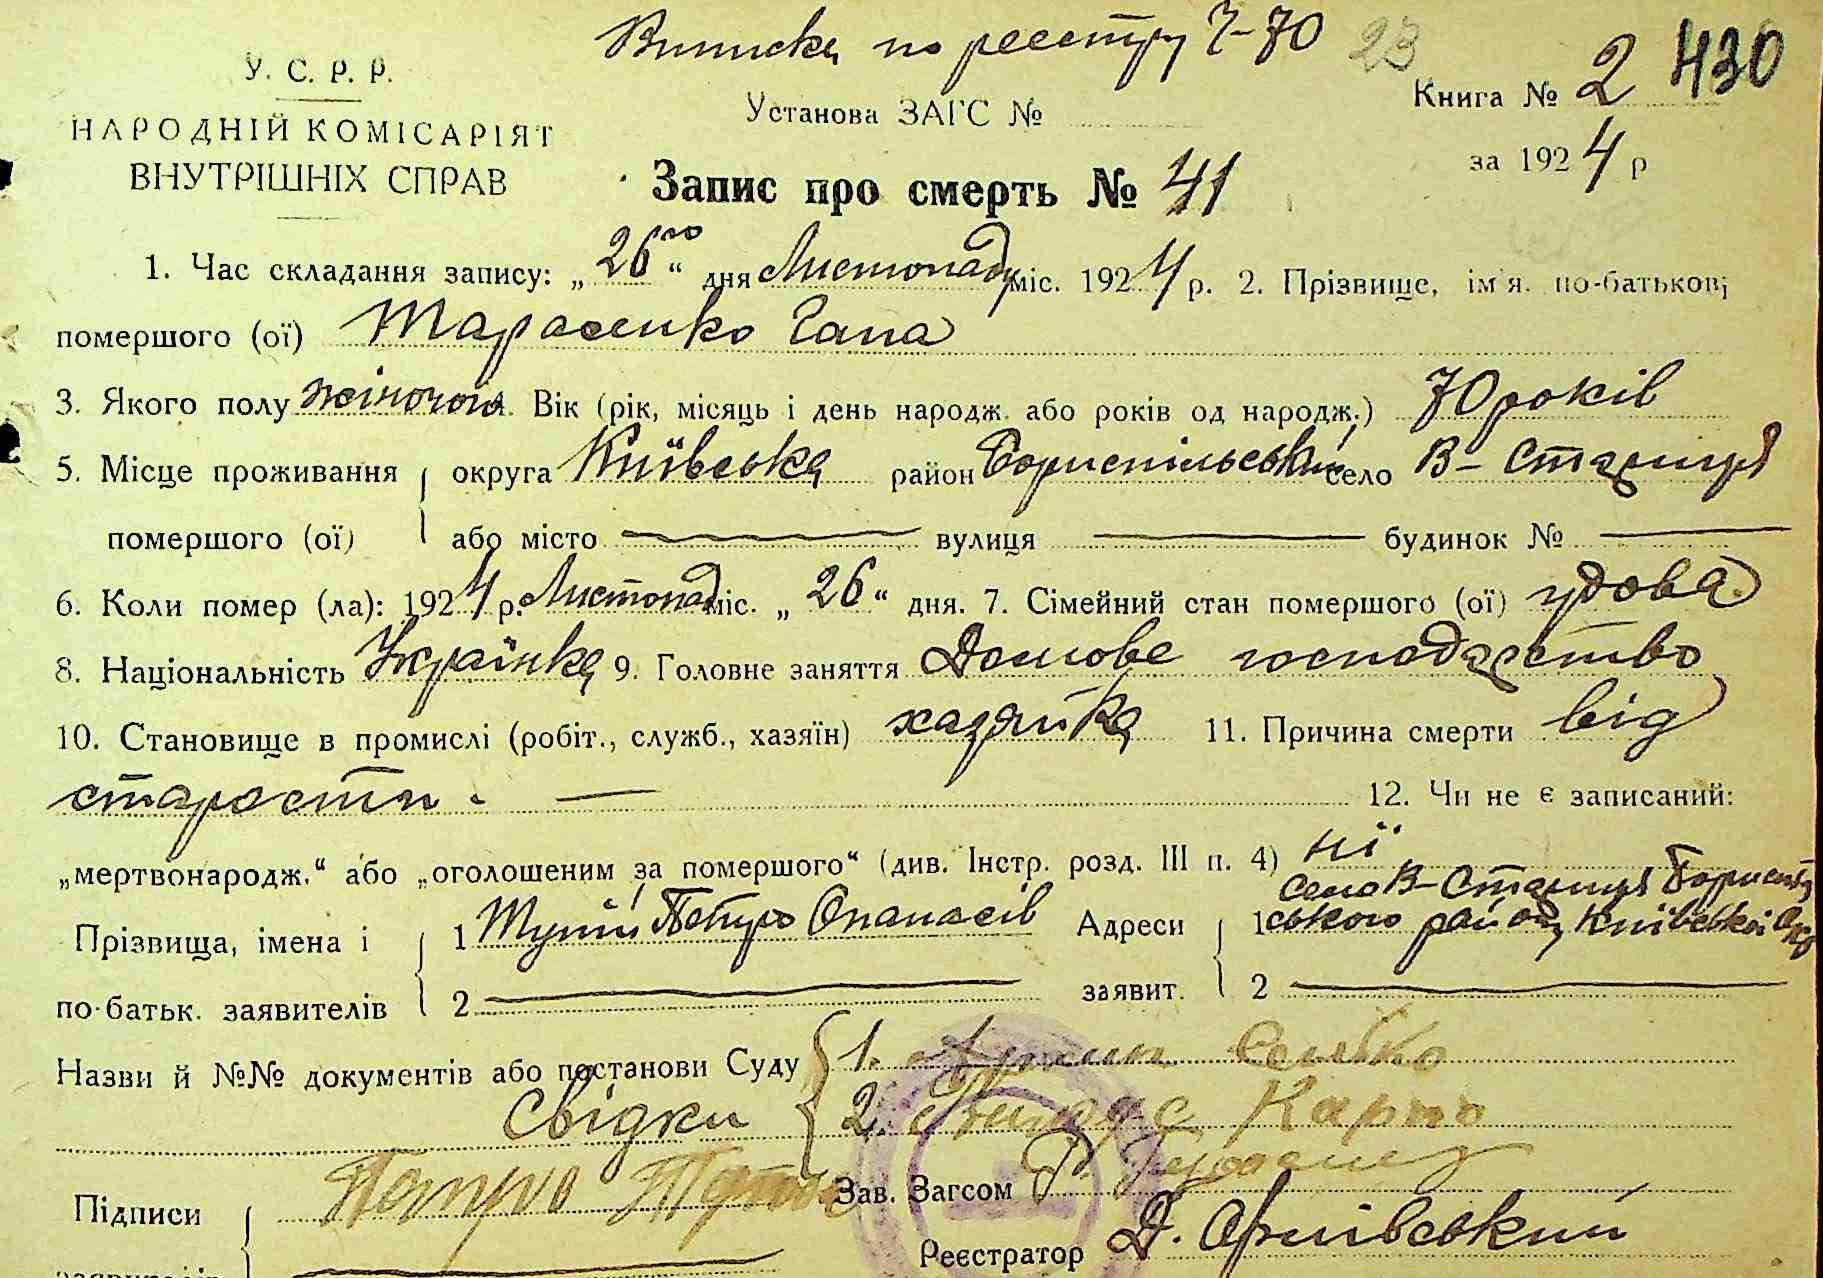 Виписка по реестру Ч-70 23
У. С. Р. Р.
Книга № 2 430
НАРОДНІЙ КОМІСАРІЯТ
ВНУТРІШНІХ СПРАВ
Установа ЗАГС №
за 1924 р
Запис про смерть № 41
1. Час складання запису: „26го“ дня Листопада міс. 1924 р. 2. Прізвище, ім'я. по-батькові
помершого (ої) Тарасенко Гапа
3. Якого полу жіночого. Вік (рік, місяць і день народж. або років од народж.) 70 років
5. Місце проживання округа Київська район Бориспільський село В-Стариця
помершого (ої) або місто — вулиця — будинок № —
6. Коли помер (ла): 1924 р. Листопад міс. „26“ дня. 7. Сімейний стан помершого (ої) удова
8. Національність Українка 9. Головне заняття Домове господарство
10. Становище в промислі (робіт., служб., хазяїн) хазяйка 11. Причина смерти від
старости. — 12. Чи не є записаний:
„мертвонародж.“ або „оголошеним за помершого“ (див. Інстр. розд. III п. 4) ні
село В-Стариця Бориспіль
Прізвища, імена і 1 Петро Опанасів Адреси 1 ського району Київської окр
по-батьк. заявителів 2 — заявит. 2 —
Назви й №№ документів або постанови Суду 1.
Свідки 2. Карпо
Підписи Петро Зав. Загсом
Реєстратор Д.